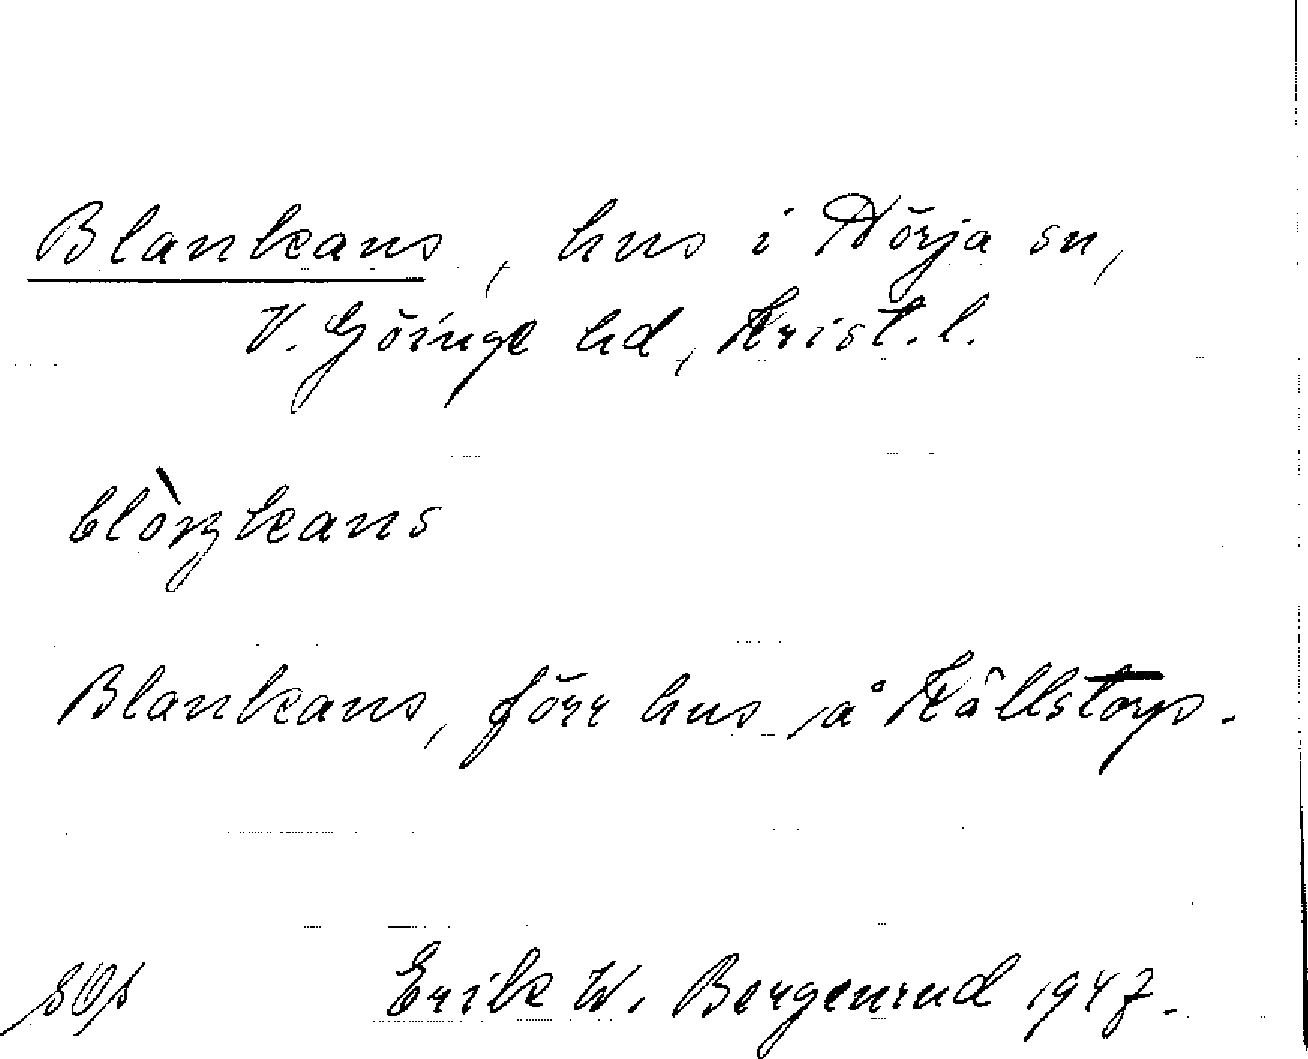 Blankans, hus i Nörja sn,
V. Göinge hd, Krist. l.
blòŋkans
Blankans, förr hus å Källstorp.
Erik W. Bergenrud 1947.